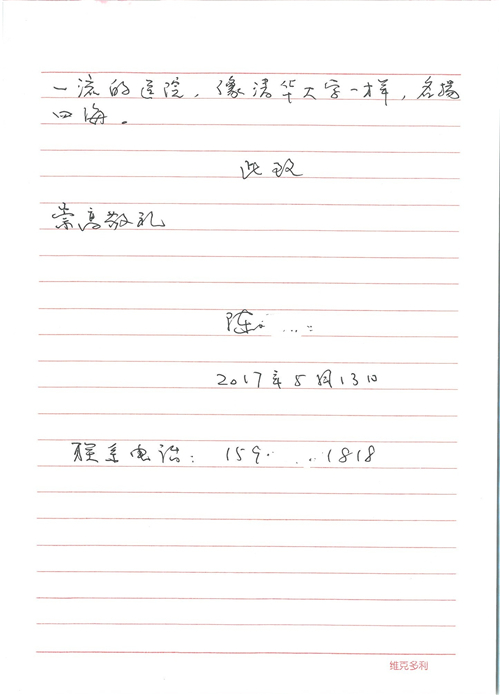 一流的医院，像清华大学一样，名扬
四海。
此致
崇高敬礼
陈
2017年5月13日
联系电话：159 1818
维克多利